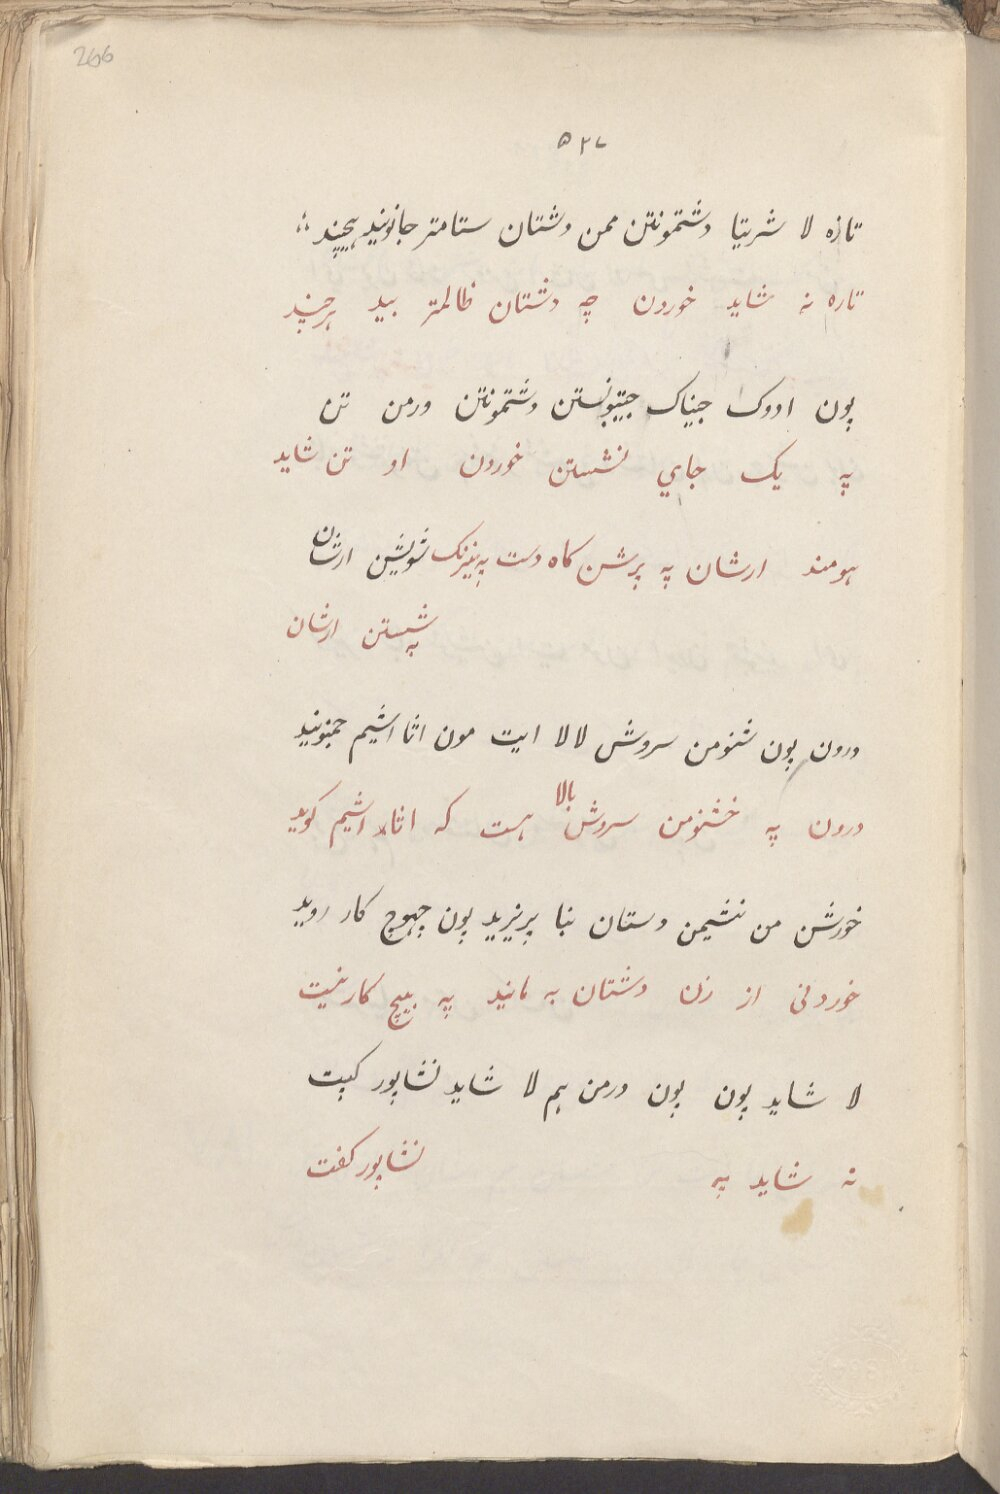 266
۵۲۷
تازه لا شریتا دشتمونتن ممن دشتان ستامتر جانونید هیچند
تازه نه شاید خوردن چه دشتان ظالمتر بید هرچند
پون ادوک جیناک جیتیبونستن دشتمونتن ورمن تن
په یک جاي نشستن خوردن او تن شاید
هومند ارشان په پرشن کاه دست په نیرنک شویشن ارشان
په شستن ارشان
درون پون شنومن سروش لالا ایت مون اثا اشیم جمنونید
درون په خشنومن سروش بالا هست که اثا اشیم کوید
خورشن من نشیمن دستان بنا پرنیرید پون چهوچ کار روید
خوردنی از زن دشتان به مانید په هیچ کار نیت
لا شاید پون پون ورمن هم لا شاید نشاپور کپت
نه شاید په نشاپور کفت